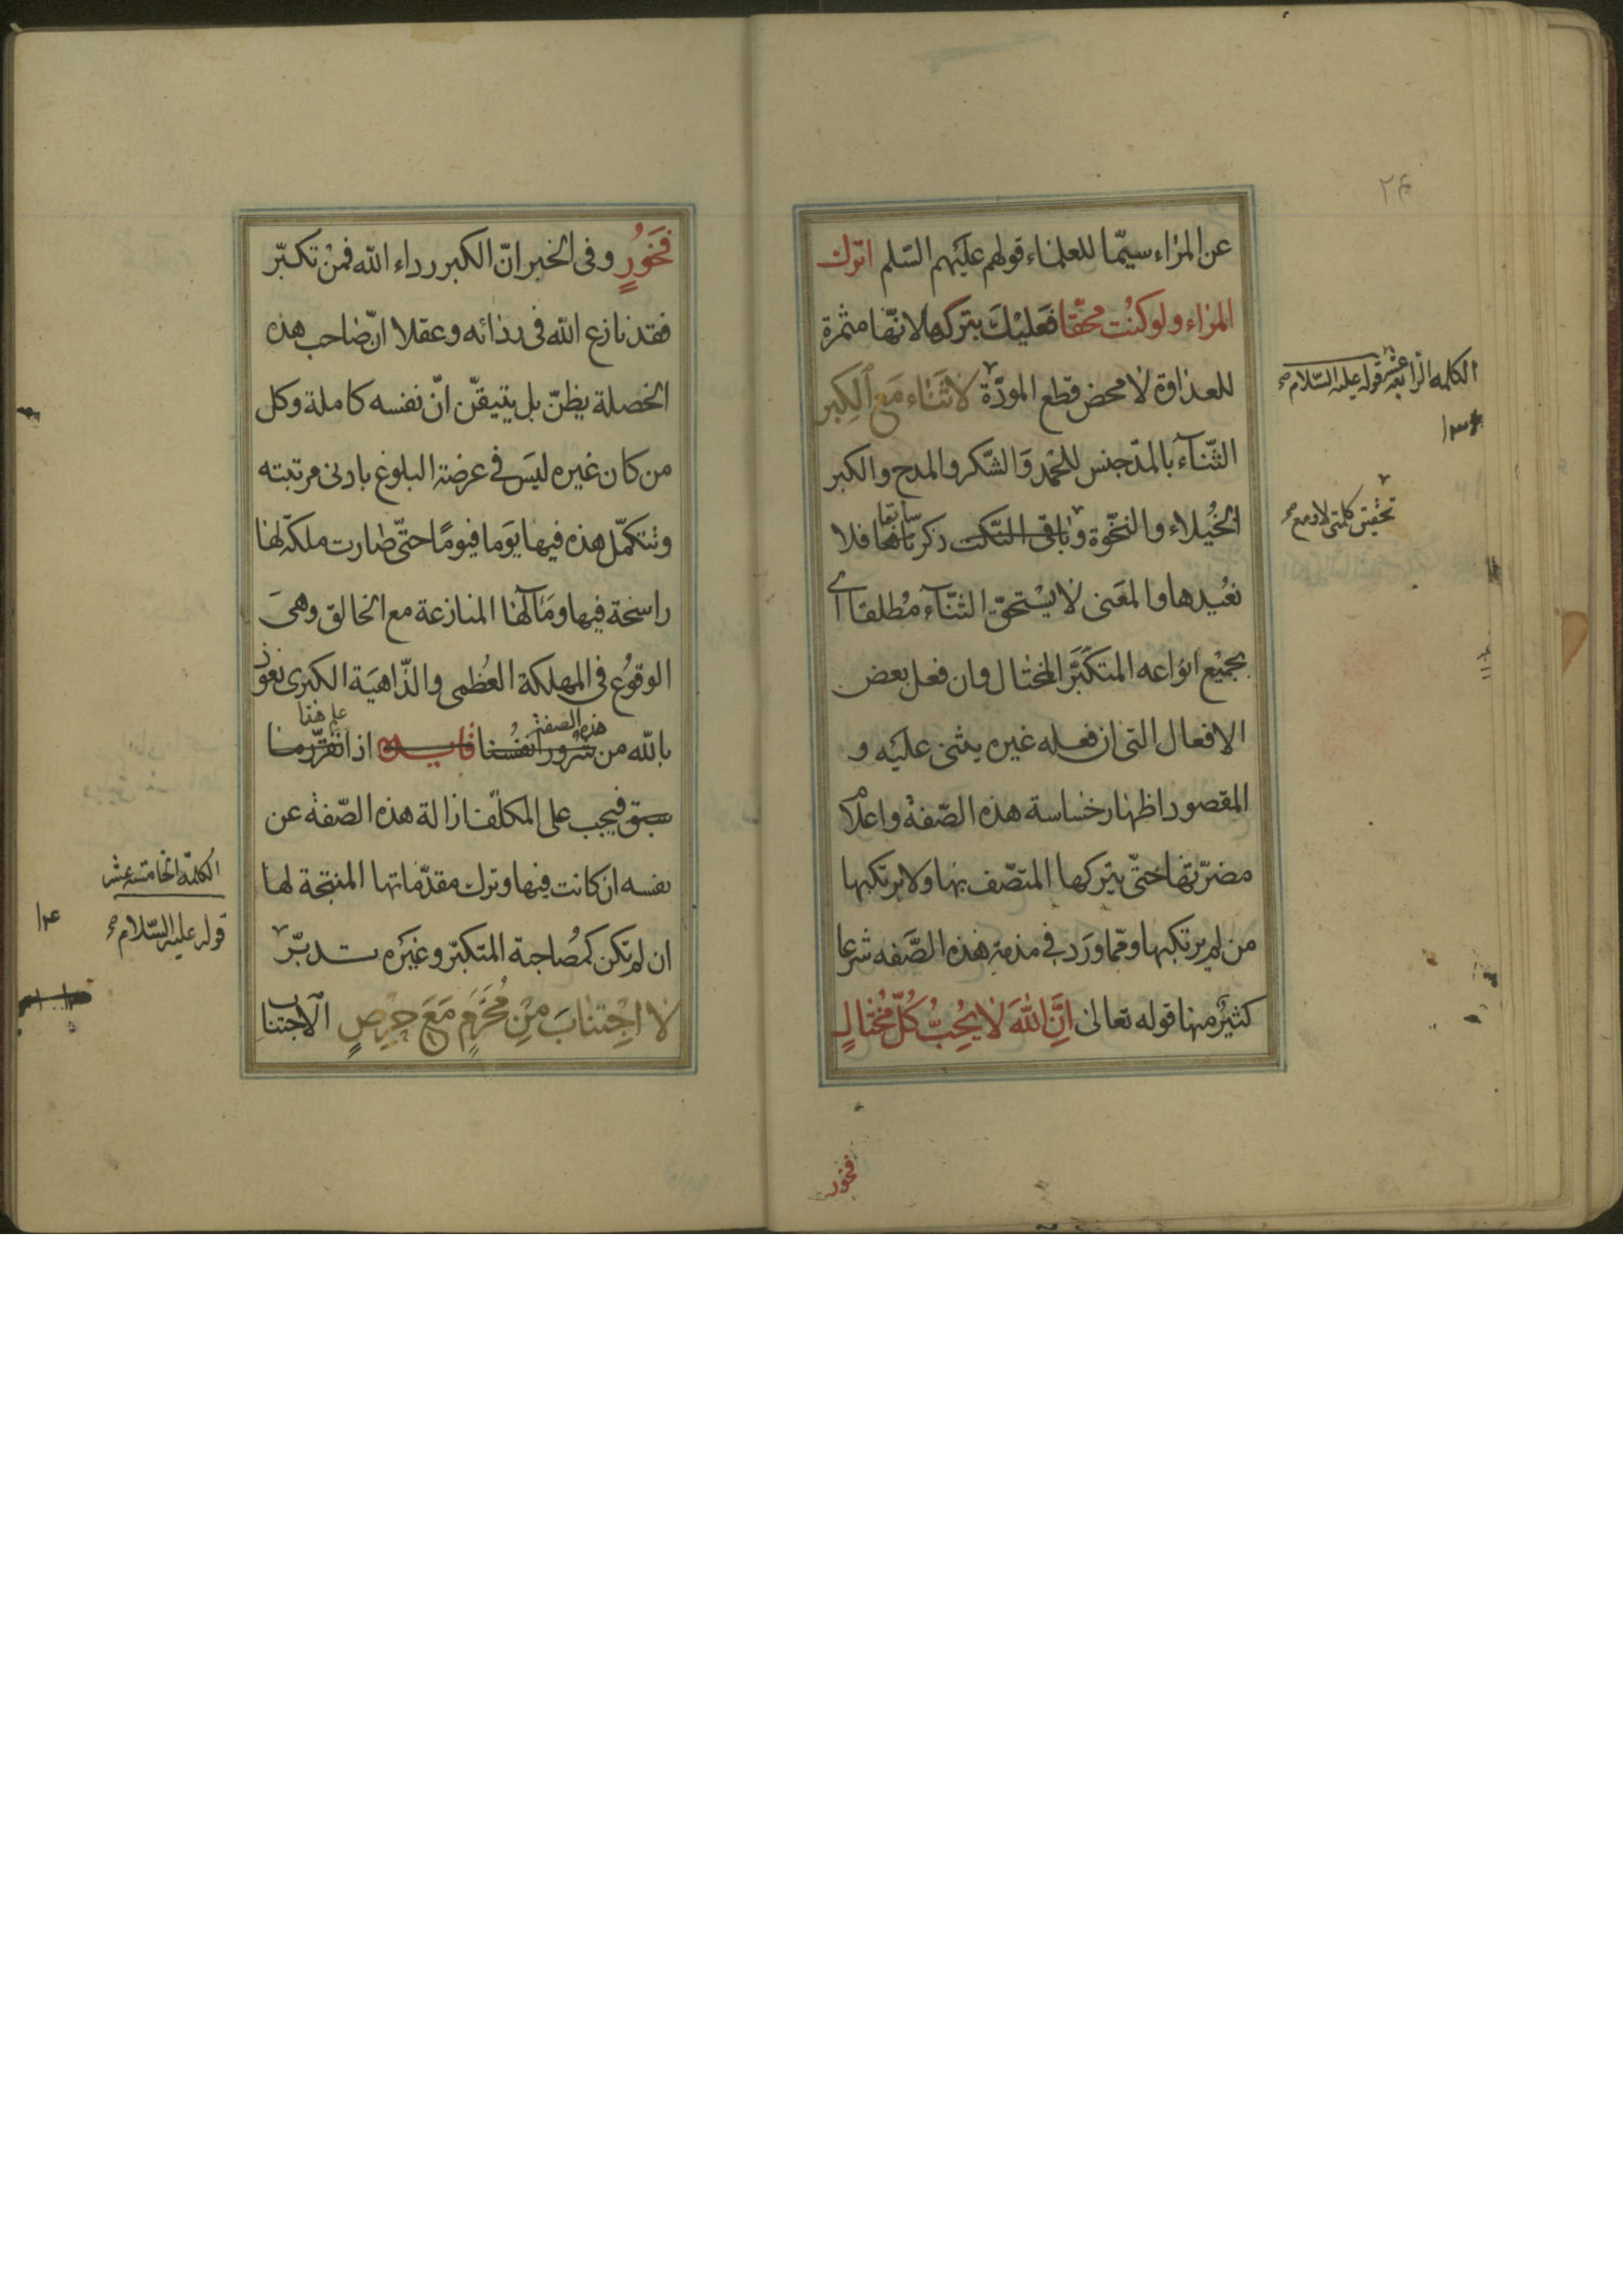 ٢۴
عن المراء سيّما للعلماء قولهم عليهم السّلم اترك
المراء ولو كنت محقّا فعليك بتركها لانّها مثمرة
للعداوة لا محض قطع المودّة لا ثناء مع الكبر
الثّناء بالمدّ جنس للحمد والشّكر والمدح والكبر
الخُيلاء والنخّوة وباقى النّكت ذكرناها سابقا فلا
نعُيدها والمعنى لا يسْتحقّ الثنّاء مُطلقا اى
بجميْع انواعه المتكبّر المختال وان فعل بعض
الافعال التى ان فعله غيره يثنى عليه و
المقصود اظهار خساسة هذه الصّفة واعلام
مضرّتها حتّى يتركها المتصّف بها ولا يرتكبها
من لم يرتكبها وممّا ورَد فى مذمة هذه الصَّفه شرعا
كثيرٌ منها قوله تعالى اِنَّ اللهَ لا يُحِبُّ كُلّ مُختالٍ
فخور
الكلمه الرابعة عشر قوله عليه السّلام صح
تحقيق كلمتى لا و مع صح
فَخوُرٍ وفى الخبر انّ الكبر رداء الله فمنْ تكبّر
فقد نازع الله فى ردائه وعقلا انّ صاحب هذه
الخصلة يظنّ بل يتيقّن انّ نفسه كاملة وكل
من كان غيره ليَس فى عرضة البلوغ بادنى مرتبته
وتتكمّل هذه فيها يَوما فيومًا حتّى صارت ملكة لها
راسخة فيها ومَآلها المنازعة مع الخالق وهىَ
الوقوُع فى المهلكة العُظمى والدّاهيَة الكبرى نعوذ
بالله من شرُور انفُسنا هذه الصفة فايده اذا تقرّر ما على هذا
سبق فيجب على المكلّف ازالة هذه الصّفة عن
نفسه ان كانت فيها وترك مقدّماتها المنتجة لها
ان لم تكن كمُصاحبة المتكبّر وغيَره تدبّر
لا اجْتنابَ مِنْ مُحَرَّمٍ مَعَ حِرْصٍ الاجتناب
الكلمة الخامسة عشر
قوله عليه السّلام صح